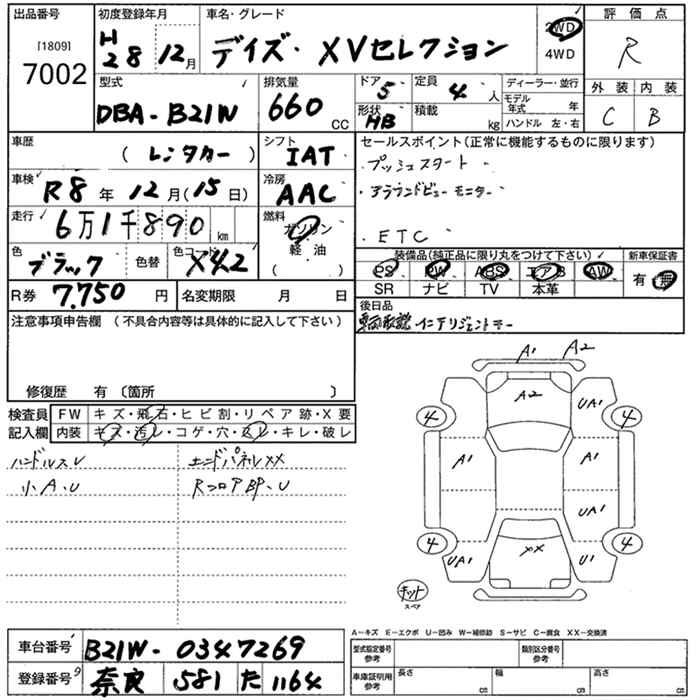 出品番号 初度登録年月 車名・グレード 2WD 評価点
[1809] H
7002 28 12月 デイズ・XVセレクション 4WD R
型式 排気量 ドア 5 定員 4人 ディーラー・並行 外装 内装
DBA-B21W 660 CC 形状 HB 積載 kg モデル年式 年 C B
ハンドル 左・右
車歴 (レンタカー) シフト IAT セールスポイント(正常に機能するものに限ります)
車検 R8年 12月(15日) 冷房 AAC ・プッシュスタート
・アラウンドビューモニター
走行 6万1千890km 燃料 ガソリン ・ETC
軽・油 ( )
色 ブラック 色替 色コード X42 装備品(純正品に限り丸をつけて下さい) 新車保証書
PS PW ABS エアB AW 有・無
R券 7,750円 名変期限 月 日 SR ナビ TV 本革
注意事項申告欄 (不具合内容等は具体的に記入して下さい) 後日品
車両取説 インテリジェントキー
修復歴 有 〔箇所 〕
検査員 FW キズ・飛石・ヒビ割・リペア跡・X要
記入欄 内装 キズ・汚レ・コゲ・穴・スレ・キレ・破レ
ハンドルスレ エンドパネルXX
小A.U RフロアBP.U
A1 A2
A2 UA1
4 4
A1 A1
UA1
4 4
UA1 XX U1
キット
スペア
A-キズ E-エクボ U-凹み W-補修跡 S-サビ C-腐食 XX-交換済
車台番号 B21W-0347269 型式指定番号 参考 類別区分番号 参考
登録番号 奈良 581 た 1164 車庫証明用 参考 長さ cm 幅 cm 高さ cm